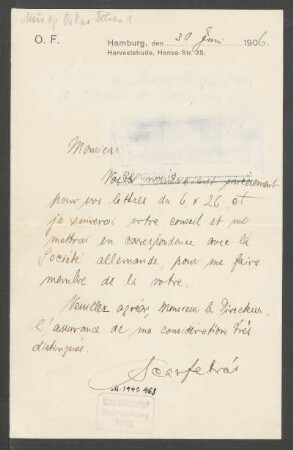 O. F.
Hamburg, den 30 Juni 1906.
Harvestehude, Hansa-Str. 35.
Monsieur
pour vos lettres du 6 & 26 et
je suiverai votre conseil et me
mettrai en correspondence avec la
Société allemande, pour me faire
membre de la votre.
Veuillez agréer, Monsieur le Directeur,
l'assurance de ma considération très
distinguée.
M. 1949. 468